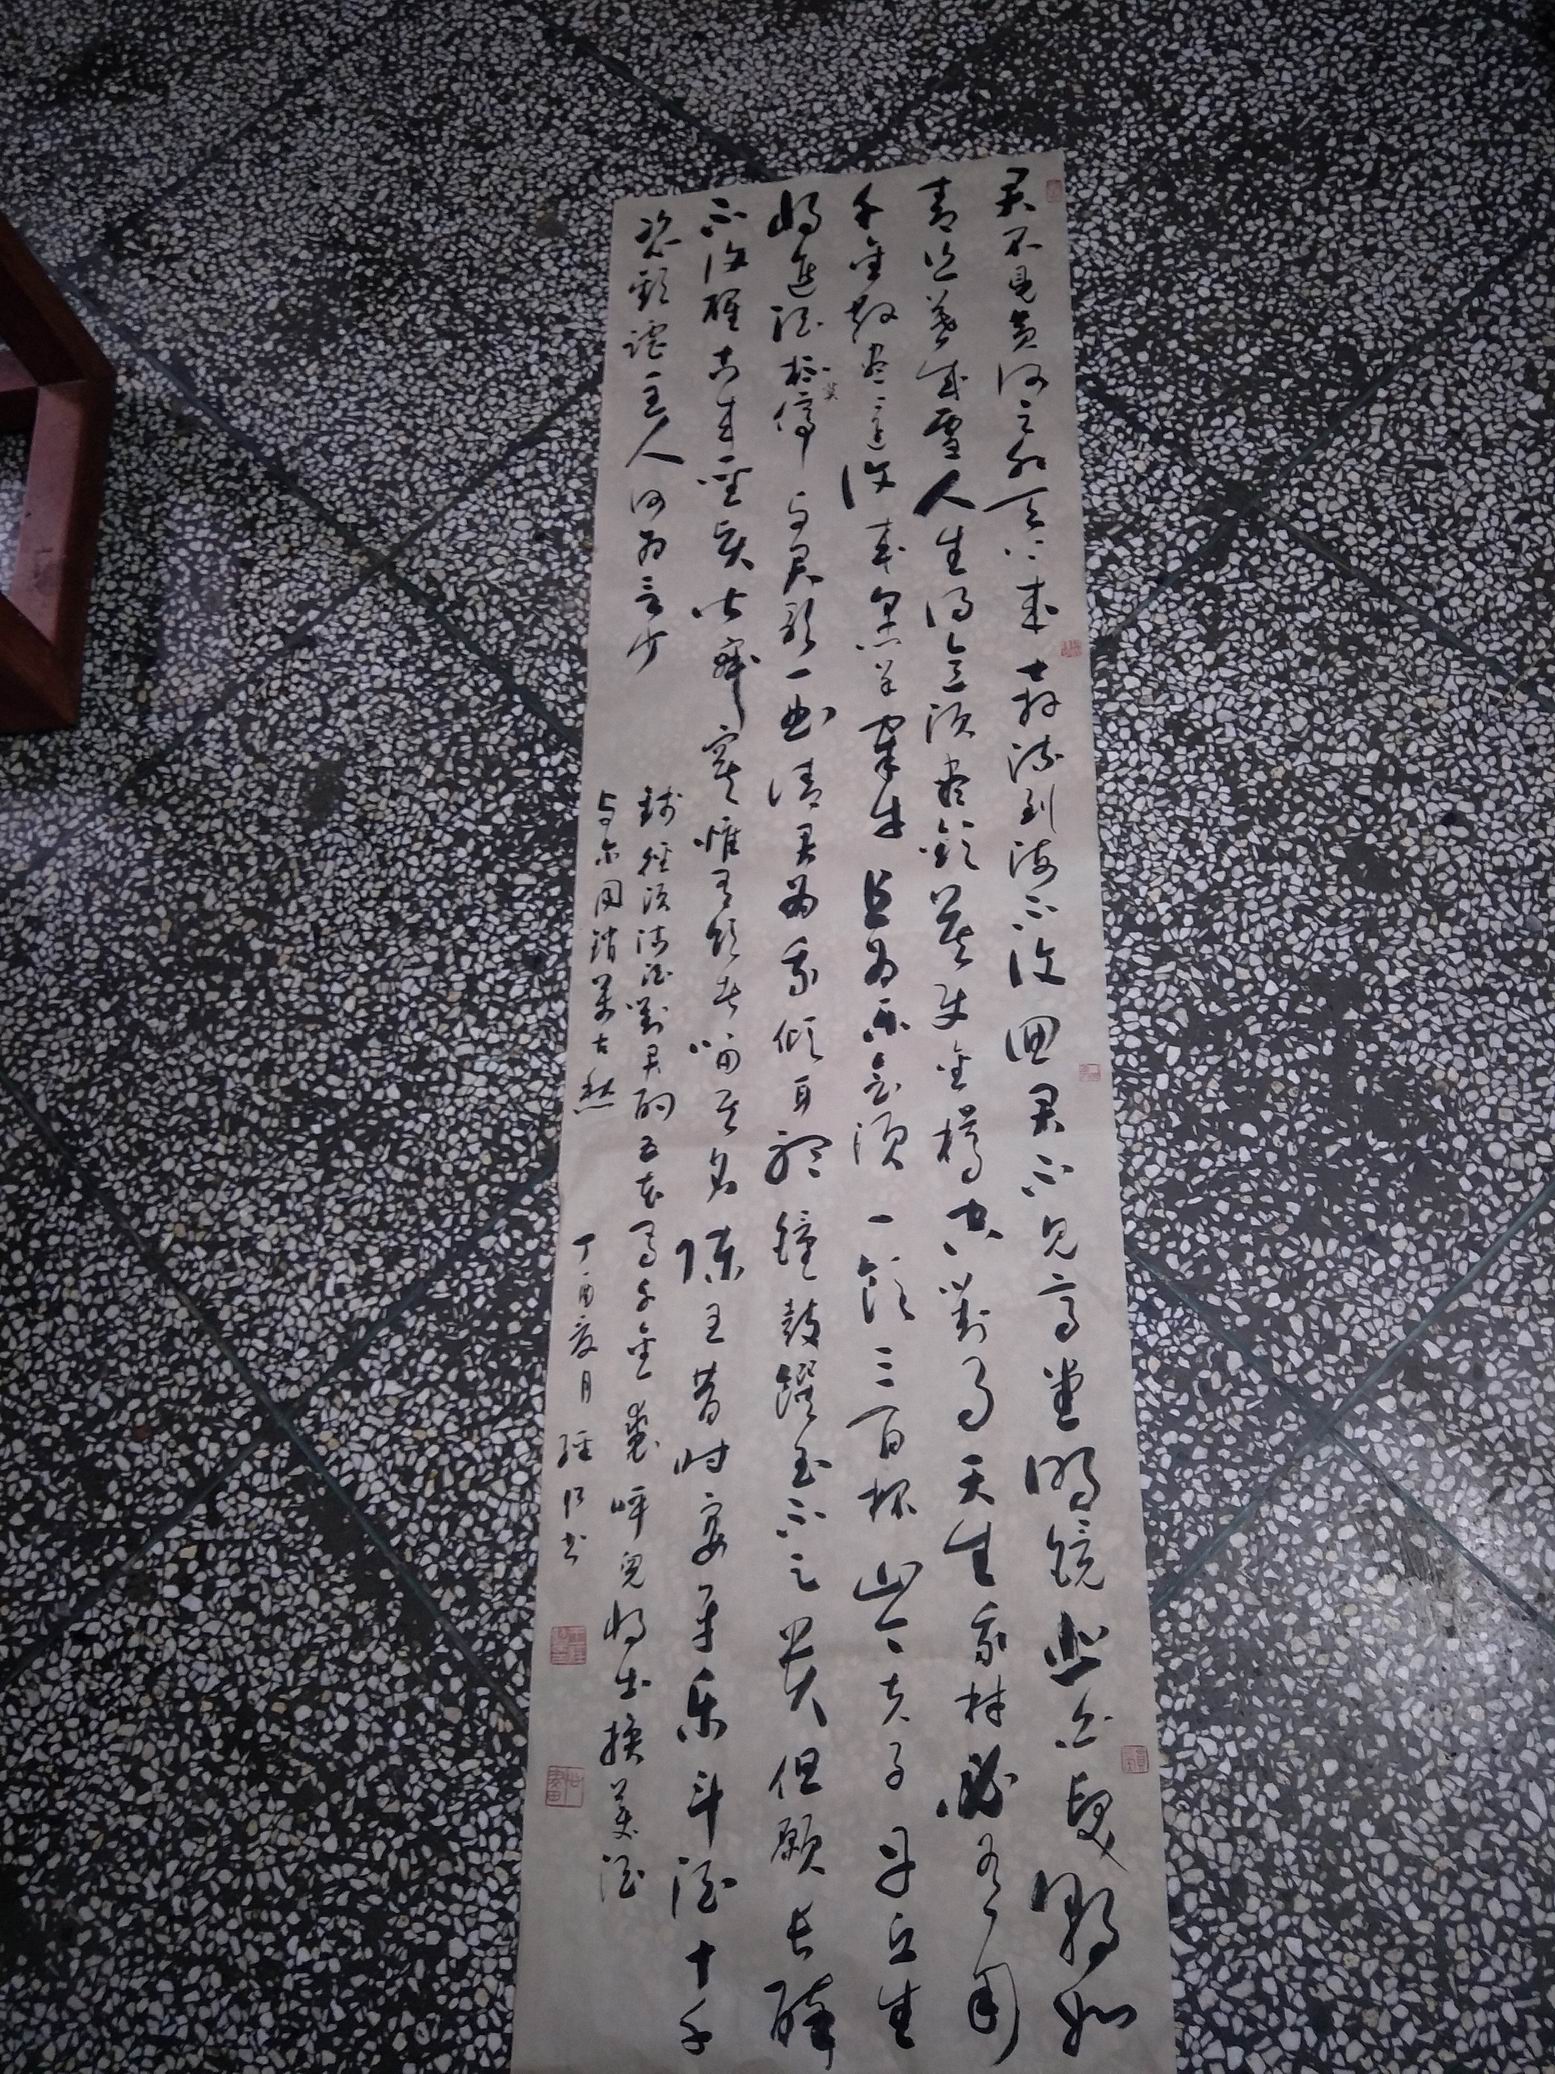 君不见黄河之水天上来奔流到海不复回君不见高堂明镜悲白发朝如
青丝暮成雪人生得意须尽欢莫使金樽空对月天生我材必有用
千金散尽还复来烹羊宰牛且为乐会须一饮三百杯岑夫子丹丘生
将进酒杯停与君歌一曲请君为我倾耳听钟鼓馔玉不足贵但愿长醉
莫
不复醒古来圣贤皆寂寞惟有饮者留其名陈王昔时宴平乐斗酒十千
恣欢谑主人何为言少
钱径须沽酒对君酌五花马千金裘呼儿将出换美酒
与尔同销万古愁
丁酉夏月
书